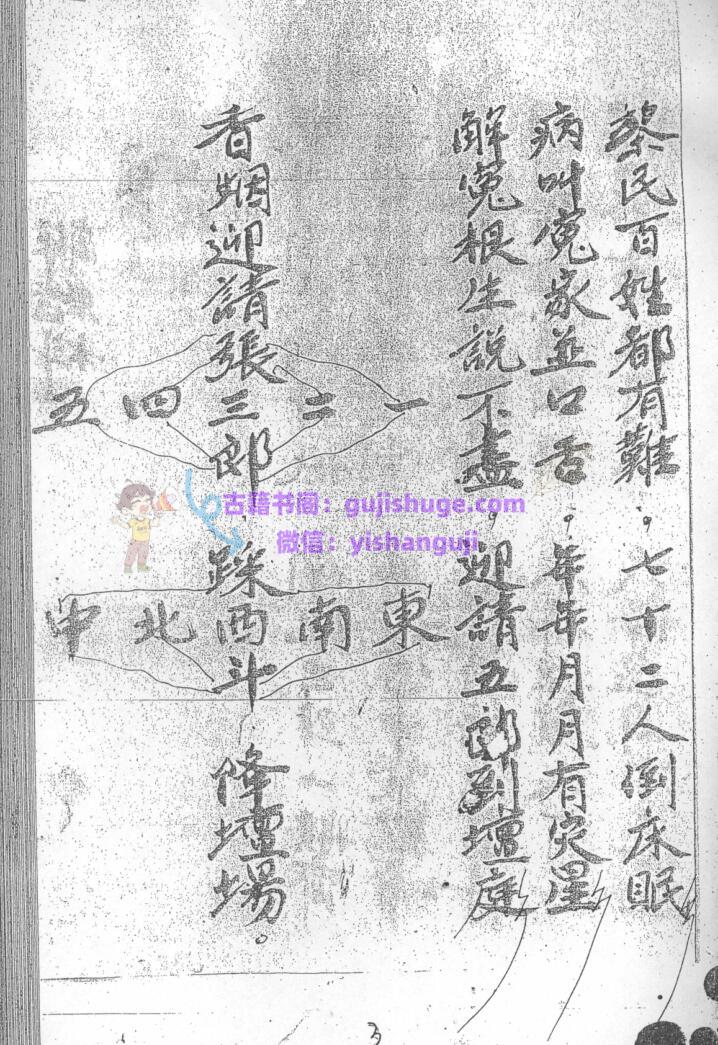 黎民百姓都有難。七十二人倒床眠
病叫冤家並口舌。年年月月有灾星
解冤根生說不盡。迎請五郎到壇庭
香烟迎請張三郎
一
二
四
五
踩西斗
東
南
北
中
降壇場。
古籍书阁：gujishuge.com
微信：yishanguji
3